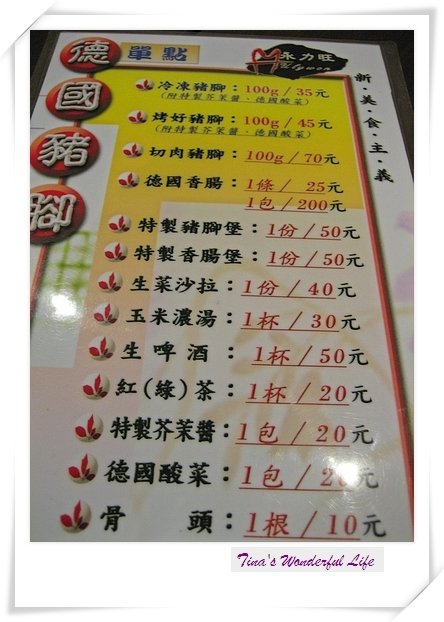 德國豬腳
單點
永力旺
新·美·食·主·義
冷凍豬腳：100g／35元
(附特製芥茉醬、德國酸菜)
烤好豬腳：100g／45元
(附特製芥茉醬、德國酸菜)
切肉豬腳：100g／70元
德國香腸：1條／ 25元
1包／200元
特製豬腳堡：1份／50元
特製香腸堡：1份／50元
生菜沙拉：1份／40元
玉米濃湯：1杯／30元
生啤酒：1杯／50元
紅(綠)茶：1杯／20元
特製芥茉醬：1包／20元
德國酸菜：1包／20元
骨頭：1根／10元
Tina's Wonderful Life